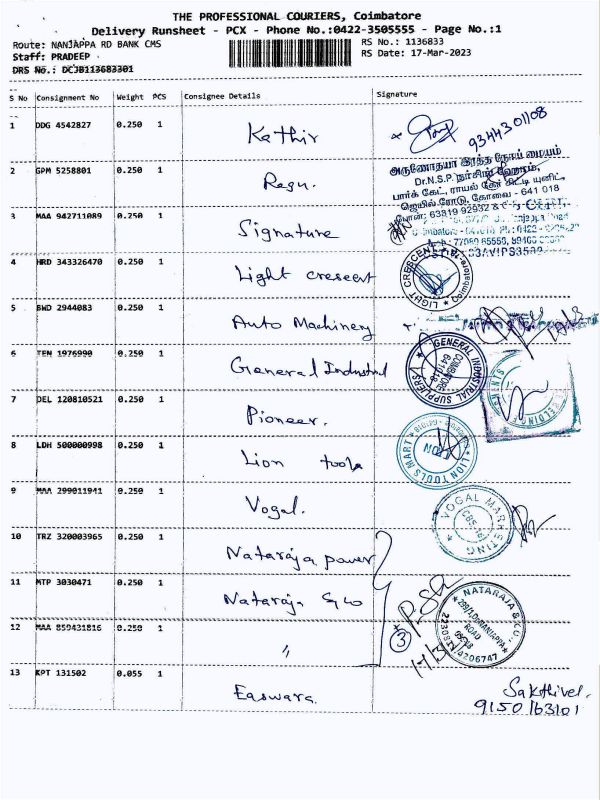 THE PROFESSIONAL COURIERS, Coimbatore
Delivery Runsheet - PCX - Phone No.:0422-3505555 - Page No.:1
Route: NANJAPPA RD BANK CMS RS No.: 1136833
Staff: PRADEEP RS Date: 17-Mar-2023
DRS No.: DCJB113683301
S No Consignment No Weight PCS Consignee Details Signature
1 DDG 4542827 0.250 1 Kathir 9344301108
2 GPM 5258801 0.250 1 Ragu.
அருணோதயா இரத்த நோய் மையம்
Dr.N.S.P. நர்சிங் ஹோம்,
பார்க் கேட், ராயல் கேர் சிட்டி யுனிட்,
ஜெயில் ரோடு, கோவை - 641 018
போன்: 63819 92932
3 MAA 942711089 0.250 1 Signature
4 HRD 343326470 0.250 1 Light crescent
LIGHT CRESCENT Coimbatore
5 BWD 2944083 0.250 1 Auto Machinery
6 TEN 1976990 0.250 1 General Industrial
GENERAL INDUSTRIAL SUPPLIERS COIMBATORE 641018
7 DEL 120810521 0.250 1 Pioneer.
8 LDH 500000998 0.250 1 Lion tools
LION TOOLS MART
9 MAA 299011941 0.250 1 Vogal.
VOGAL MARKETING CBE-18
10 TRZ 320003965 0.250 1 Nataraja power
11 MTP 3030471 0.250 1 Nataraja & co
NATARAJA & CO.,
ROAD
12 MAA 859431816 0.250 1 〃 3
13 KPT 131502 0.055 1 Easwara. Sakthivel.
9150163101